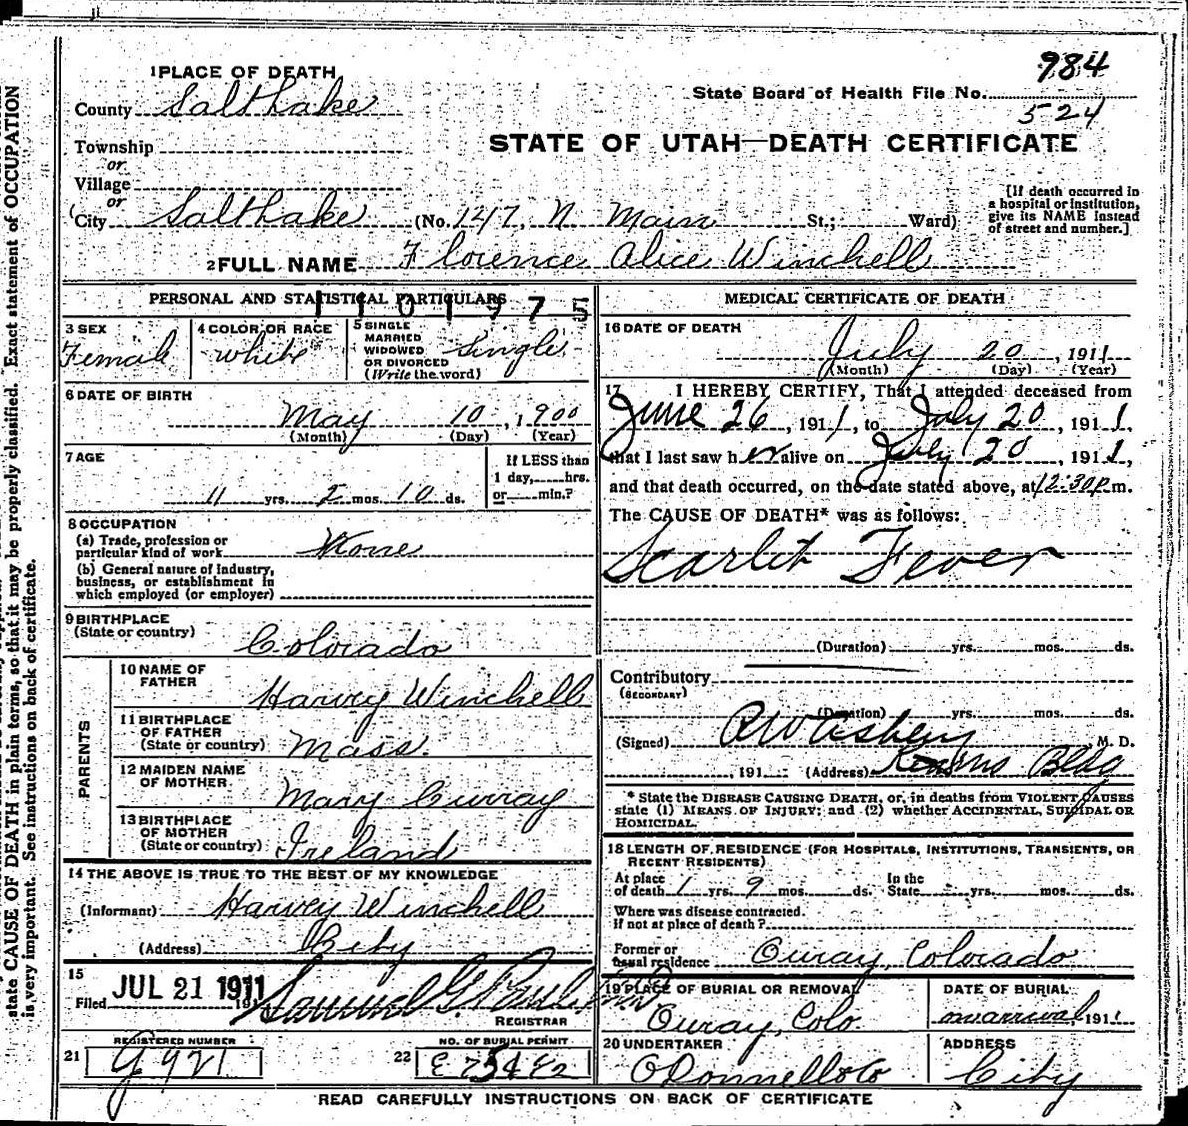 984
1 PLACE OF DEATH
State Board of Health File No.
County Salt Lake
524
STATE OF UTAH—DEATH CERTIFICATE
Township
or
Village
or
City Salt Lake (No. 147, N. Main St.; Ward)
[If death occurred in
a hospital or institution,
give its NAME instead
of street and number.]
2 FULL NAME Florence Alice Winchell
PERSONAL AND STATISTICAL PARTICULARS
3 SEX
Female
4 COLOR OR RACE
white
5 SINGLE
MARRIED
WIDOWED
OR DIVORCED
(Write the word)
Single
6 DATE OF BIRTH
May 10, 1900
(Month) (Day) (Year)
7 AGE
11 yrs. 2 mos. 10 ds.
If LESS than
1 day, hrs.
or min.?
8 OCCUPATION
(a) Trade, profession or
particular kind of work None
(b) General nature of industry,
business, or establishment in
which employed (or employer)
9 BIRTHPLACE
(State or country)
Colorado
PARENTS
10 NAME OF
FATHER
Harvey Winchell
11 BIRTHPLACE
OF FATHER
(State or country) Mass.
12 MAIDEN NAME
OF MOTHER
Mary Curray
13 BIRTHPLACE
OF MOTHER
(State or country) Ireland
14 THE ABOVE IS TRUE TO THE BEST OF MY KNOWLEDGE
(Informant) Harvey Winchell
(Address) City
15
Filed JUL 21 1911 Samuel G. Paul
REGISTRAR
21
REGISTERED NUMBER
G 921
22
NO. OF BURIAL PERMIT
MEDICAL CERTIFICATE OF DEATH
16 DATE OF DEATH
July 20, 1911
(Month) (Day) (Year)
17 I HEREBY CERTIFY, That I attended deceased from
June 26, 1911, to July 20, 1911,
that I last saw her alive on July 20, 1911,
and that death occurred, on the date stated above, at 12:30 p m.
The CAUSE OF DEATH* was as follows:
Scarlet Fever
(Duration) yrs. mos. ds.
Contributory
(SECONDARY)
(Duration) yrs. mos. ds.
(Signed) M. D.
, 191 (Address) Kearns Bldg
* State the DISEASE CAUSING DEATH, or, in deaths from VIOLENT CAUSES
state (1) MEANS OF INJURY; and (2) whether ACCIDENTAL, SUICIDAL OR
HOMICIDAL.
18 LENGTH OF RESIDENCE (FOR HOSPITALS, INSTITUTIONS, TRANSIENTS, OR
RECENT RESIDENTS)
At place
of death 1 yrs. 9 mos. ds. In the
State yrs. mos. ds.
Where was disease contracted.
If not at place of death?
Former or
usual residence Ouray, Colorado
19 PLACE OF BURIAL OR REMOVAL
Ouray, Colo.
DATE OF BURIAL
on arrival, 1911
20 UNDERTAKER
O'Donnell & Co
ADDRESS
City
READ CAREFULLY INSTRUCTIONS ON BACK OF CERTIFICATE
state CAUSE OF DEATH in plain terms, so that it may be properly classified. Exact statement of OCCUPATION
is very important. See instructions on back of certificate.